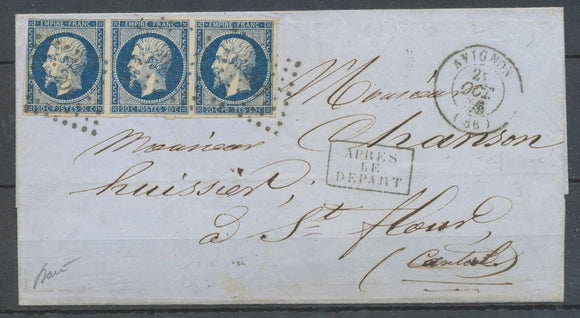 EMPIRE FRANC EMPIRE FRANC EMPIRE FRANC
20 C POSTES 20 C 20 C POSTES 20 C 20 C POSTES 20 C
AVIGNON
24
OCT
(86)
Monsieur
Monsieur Chanson
APRES
LE
DEPART
huissier,
à St flour,
(Cantal)